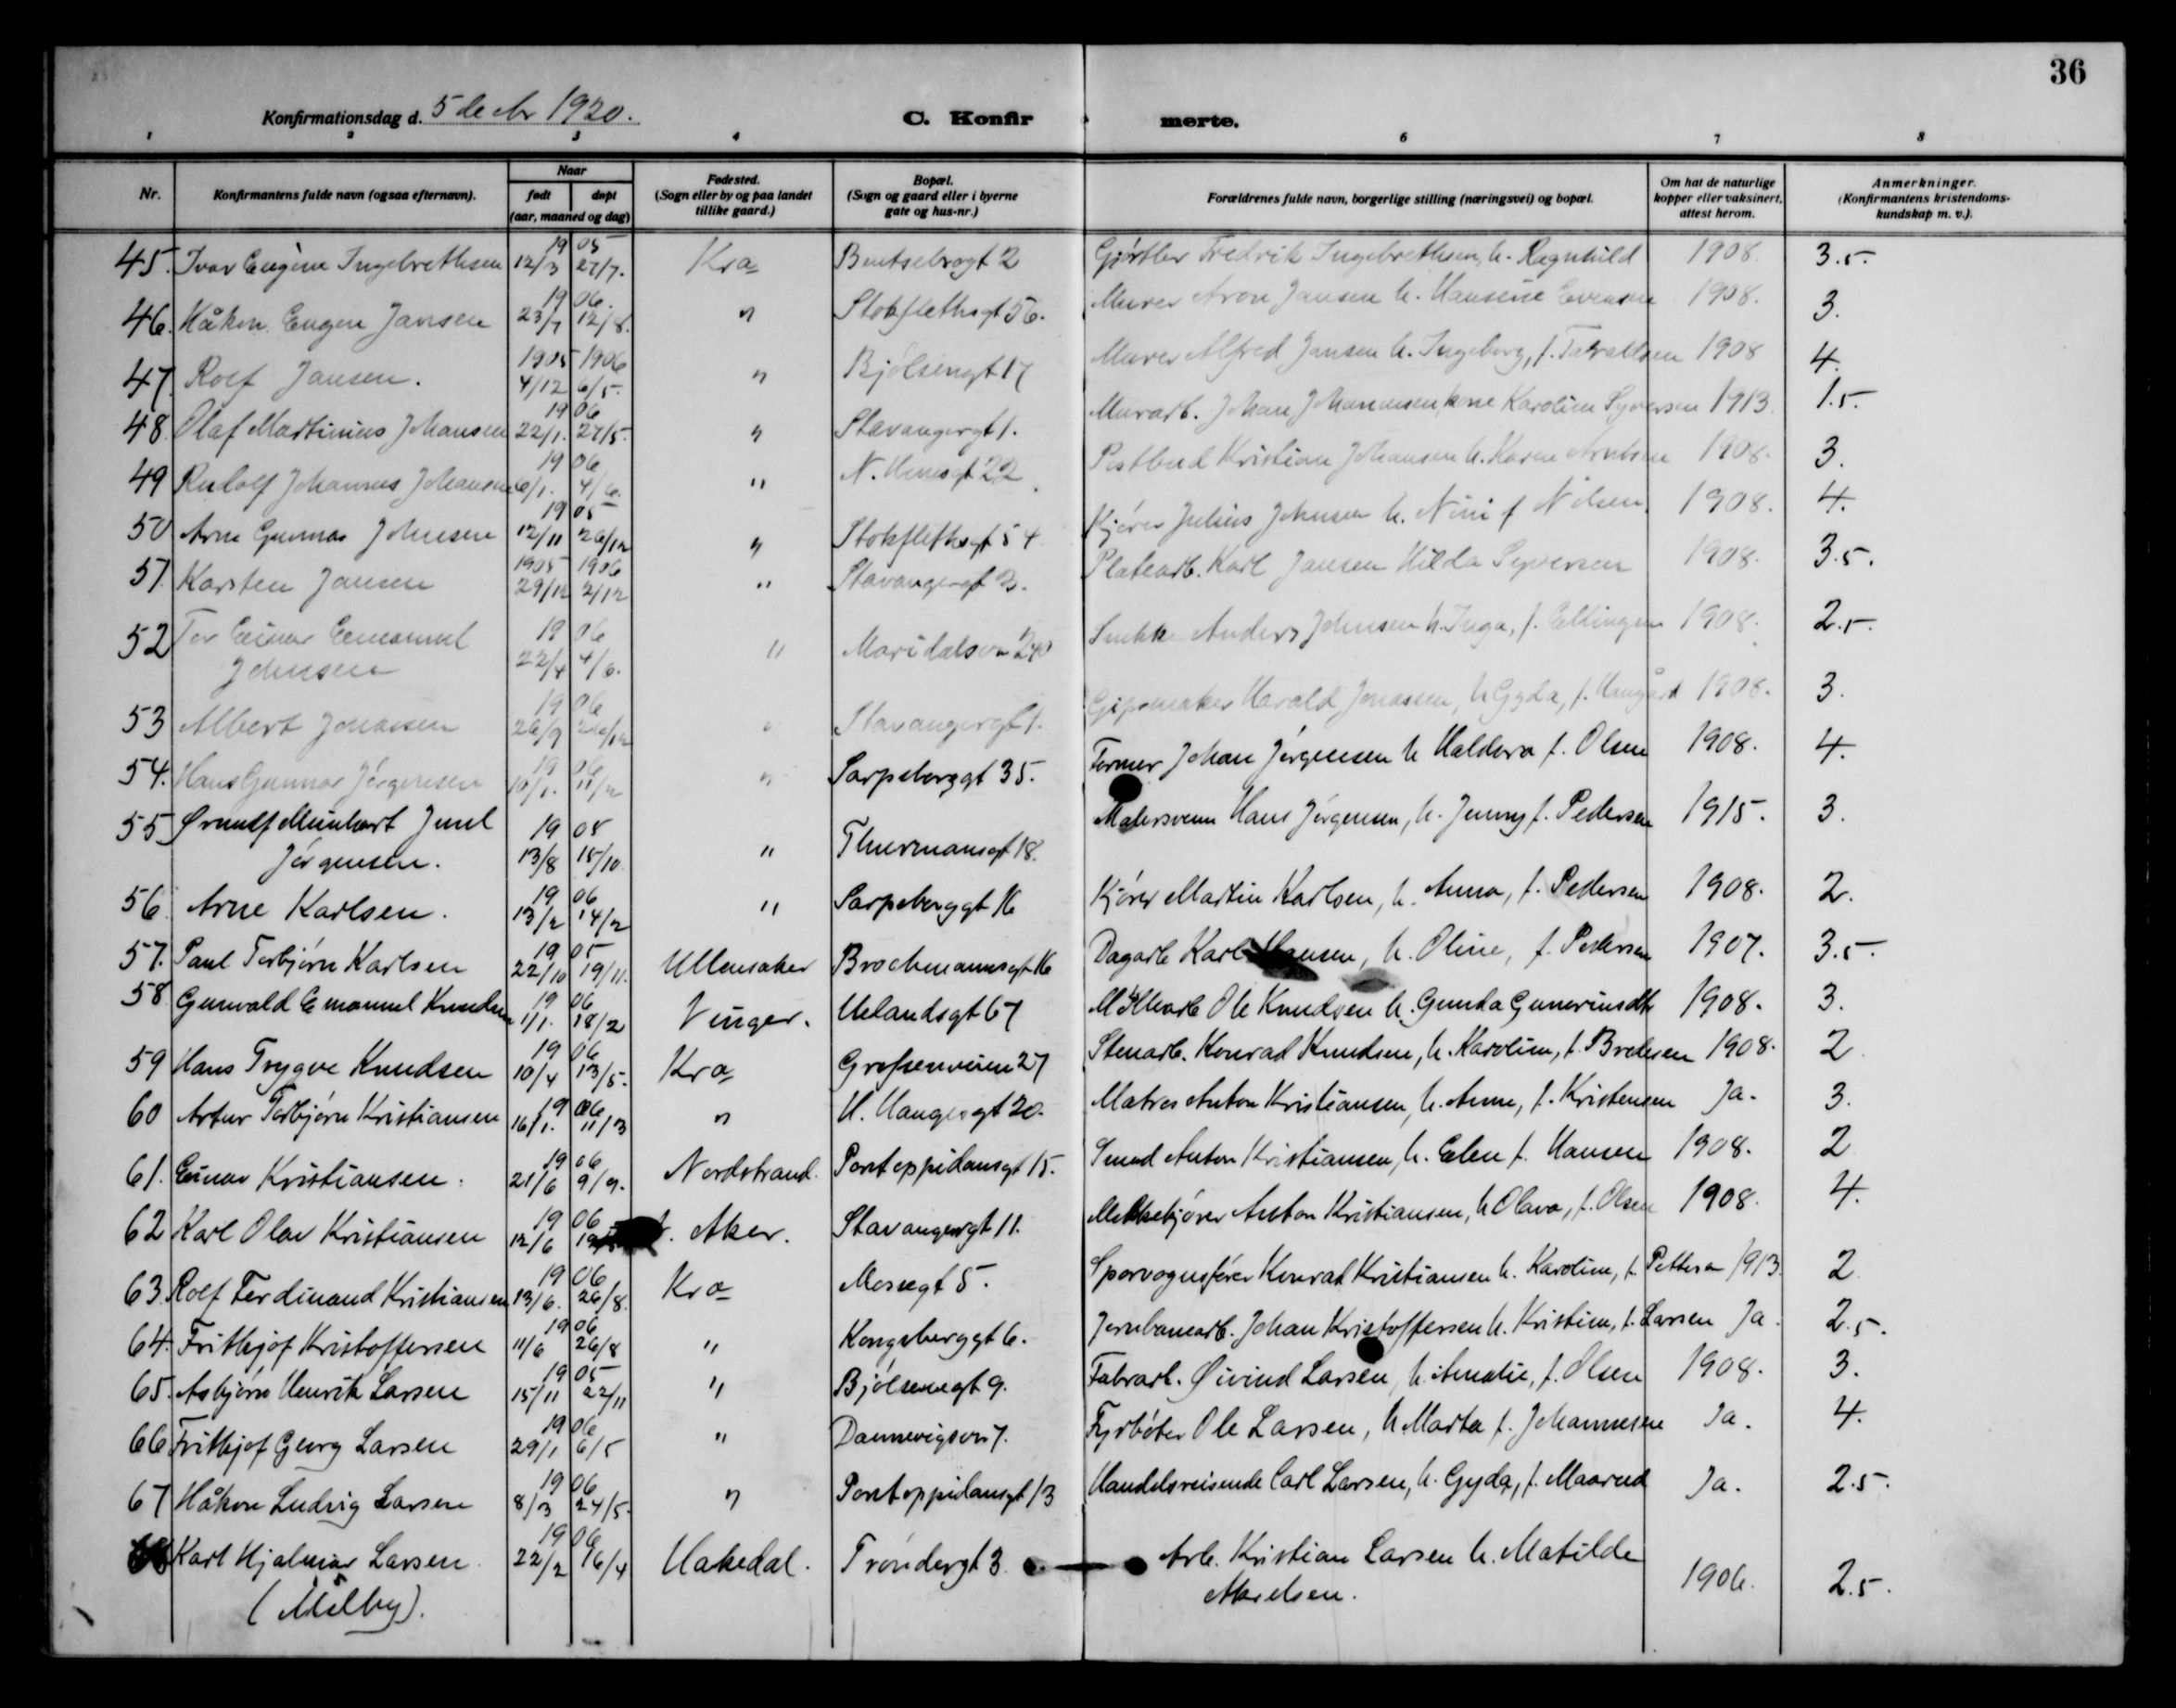 36
Konfirmationsdag d. 5 decbr 1920.
C. Konfirmerte.
1 2 3 4 6 7 8
Nr.
Konfirmantens fulde navn (ogsaa efternavn).
Naar
født døpt
(aar, maaned og dag)
Fødested.
(Sogn eller by og paa landet
tillike gaard.)
Bopæl.
(Sogn og gaard eller i byerne
gate og hus-nr.)
Forældrenes fulde navn, borgerlige stilling (næringsvei) og bopæl.
Om hat de naturlige
kopper eller vaksinert,
attest herom.
Anmerkninger.
(Konfirmantens kristendoms-
kundskap m. v.).
45. Ivar Eugène Ingebrethsen 1905 12/3 27/7. Kra Bentsebrogt 2 Gjørtler Fredrik Ingebrethsen, h. Ragnhild 1908. 3.5.
46. Håkon Eugen Jansen 1906. 23/7 12/8. " Stokflethsgt 56. Murer Aron Jansen h. Hansine Evensen 1908. 3.
47. Rolf Jansen. 1905 1906 4/12 6/5. " Bjølsengt 17 Murer Alfred Jansen h. Ingeborg, f. 1908 4.
48. Olaf Martinius Johansen 1906 22/1. 27/5. " Stavangergt 1. Murarb. Johan Johannesen, kone Karoline Syversen 1913. 1.5.
49 Rudolf Johannes Johansen 1906 6/1. 4/6. " N. 22 Postbud Kristian Johansen h. Karen Arntsen 1908. 3.
50 Arne Gunnar Johnsen 1905 12/11 26/12 " Stokflethsgt 54 Kjører Julius Johnsen h. Nini f Nilsen 1908. 4.
51. Karsten Jansen 1905 1906 29/12 2/12 " Stavangergt 3. Platearb. Karl Jansen Hilda Syversen 1908. 3.5.
52 Tor Einar Emanuel
Johnsen 1906 22/4 4/6. " Maridalsvn 240 Smekk Anders Johnsen h. Inga, f. Ellingsen 1908. 2.5.
53 Albert Jonassen 1906 26/9 26/12 " Stavangergt 1. Gipsmaker Harald Jonassen, h Gyda, f. Haugård 1908. 3.
54. Hans Gunnar Jørgensen 1906 10/1. 11/2 " Sarpsborggt 35. Former Johan Jørgensen h Haldora f. Olsen 1908. 4.
55. Ørnulf Meinhart Juul
Jørgensen. 1905 13/8 15/10. " Thurmansgt 18. Malersvenn Hans Jørgensen, h. Jenny f. Pedersen 1915. 3.
56. Arne Karlsen. 1906 13/2 14/2 " Sarpsborggt 16 Kjører Martin Karlsen, h. Anna, f. Pedersen 1908. 2.
57. Paul Torbjørn Karlsen 1905 22/10 19/11. Ullensaker Brochmannsgt 16 Dagarb Karl Hansen, h. Oline, f. Pedersen 1907. 3.5.
58. Gunvald Emanuel Knudsen 1906 1/1. 18/2 Vinger. Uelandsgt 67 Møllearb Ole Knudsen h. Gunda Gunerius dtr 1908. 3.
59 Hans Trygve Knudsen 1906 10/4 13/5. Kra Grefsenveien 27 Stenarb. Konrad Knudsen, h. Karoline, f. Bredesen 1908. 2
60 Artur Torbjørn Kristiansen 1906 16/1. 11/3 " H. Haugesgt 20. Matros Anton Kristiansen, h. Anne, f. Kristensen Ja. 3.
61. Einar Kristiansen. 1906 21/6 9/9. Nordstrand. Pontoppidansgt 15. Smed Anton Kristiansen, h. Elen f. Hansen 1908. 2
62 Karl Olav Kristiansen 1906 12/6 Aker. Stavangergt 11. Melkekjører Anton Kristiansen, h Olava, f. Olsen 1908. 4.
63. Rolf Ferdinand Kristiansen 1906 13/6. 26/8. Kra Mossegt 5. Sporvognsfører Konrad Kristiansen h. Karoline, f. Petterson 1913. 2
64. Frithjof Kristoffersen 1906 11/6 26/8 " Kongsberggt 6. Jernbanearb. Johan Kristoffersen h. Kristine, f. Larsen Ja. 2.5.
65. Asbjørn Henrik Larsen 1905 15/11 22/11 " Bjølsengt 9. Fabrarb. Øivind Larsen, h. Amalie, f. Olsen 1908. 3.
66 Frithjof Georg Larsen 1906 29/1 6/5 " Dannevigsvn 7. Fyrbøter Ole Larsen, h. Marta f. Johannesen Ja. 4.
67 Håkon Ludvig Larsen 1906 8/3 24/5. " Pontoppidansgt 13 Handelsreisende Carl Larsen, h. Gyda, f. Maarud Ja. 2.5.
68 Karl Hjalmar Larsen 1906 22/2 16/4 Hakedal. Trøndergt 3. Arb. Kristian Larsen h. Matilde
(Milby). Akselsen. 1906. 2.5.